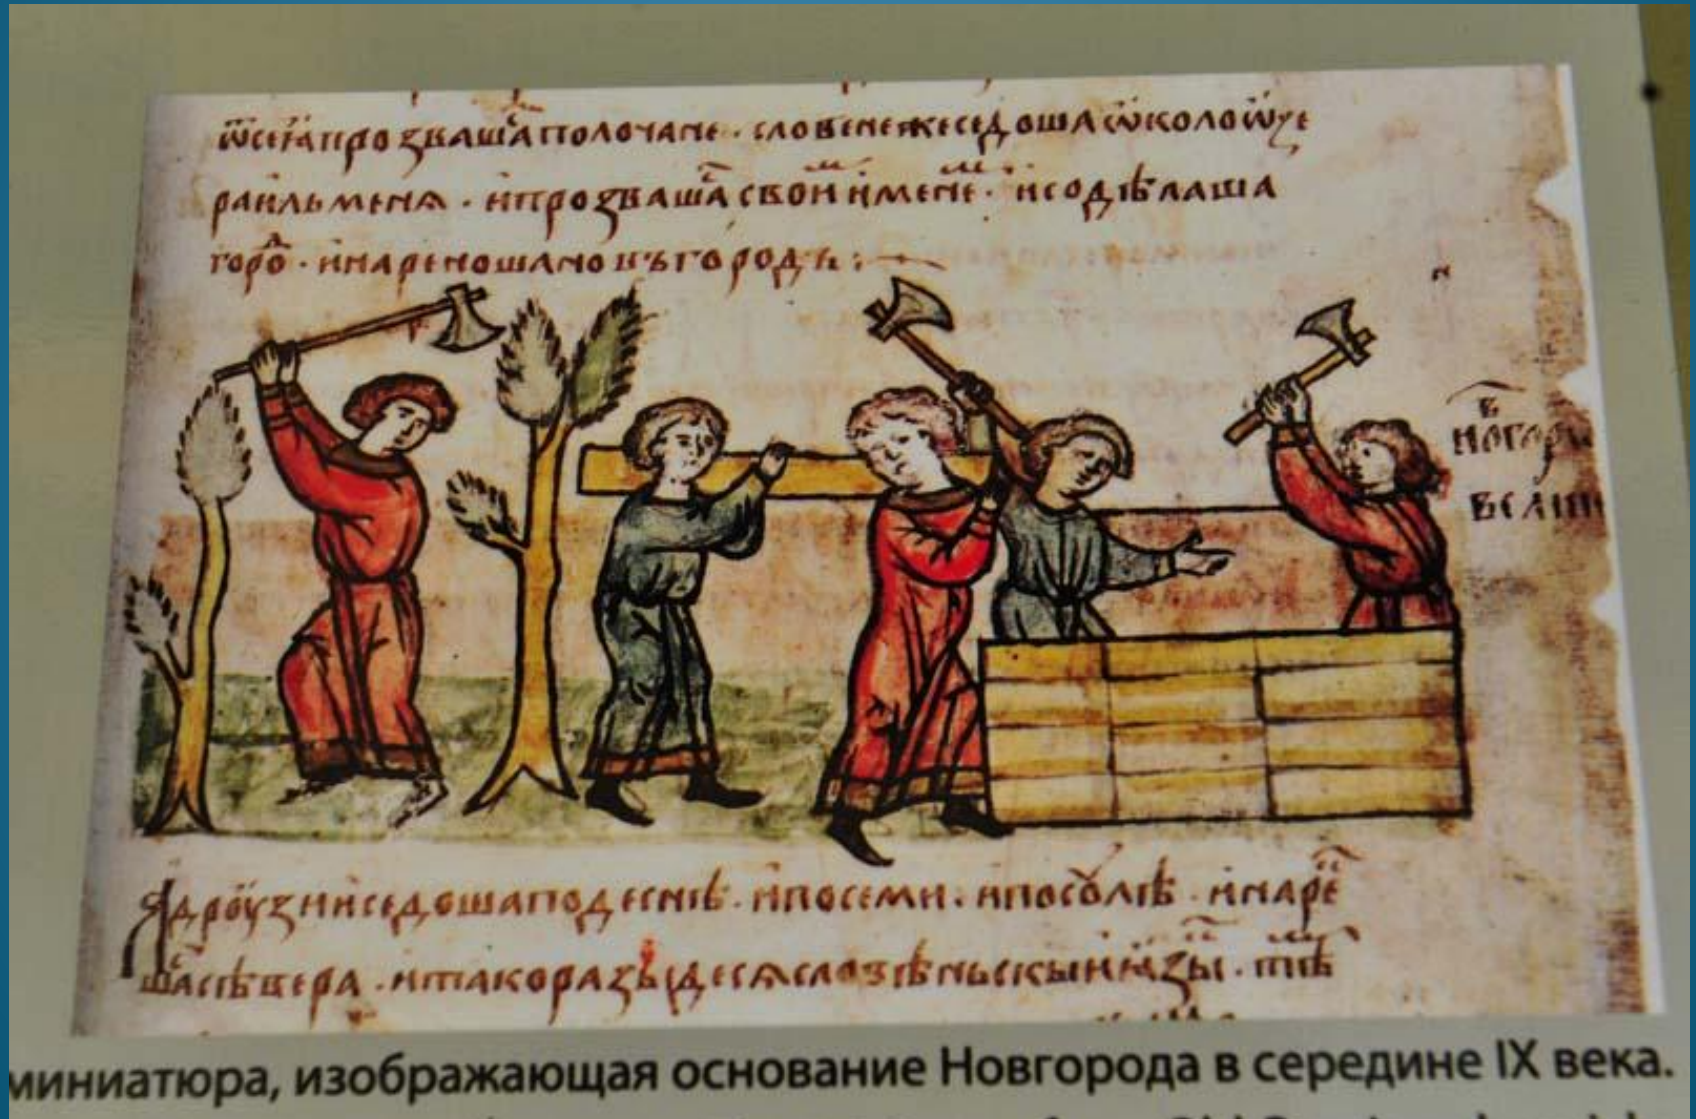 ѿсеꙗ прозвашаⷭ҇ полочане · словене же седоша ѡколо ѡзе
ра ильменя · и прозвашаⷭ҇ своиⷨ именеⷨ · и содѣлаша
гороⷣ · и нарекоша новъгородъ :
в
новгоро
велик
А дроузии седоша по деснѣ · и по семи · и по соулѣ · и наре
шаⷭ҇ сѣвера · и тако разыдеся словѣньскыи ꙗзы ·
миниатюра, изображающая основание Новгорода в середине IX века.